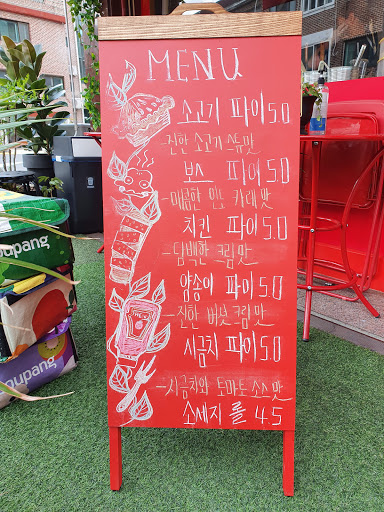 MENU
소고기 파이 5.0
-진한 소고기 스튜맛
보스 파이 5.0
-매콤한 인도 카레맛
치킨 파이 5.0
-담백한 크림 맛
양송이 파이 5.0
-진한 버섯 크림 맛
시금치 파이 5.0
-시금치와 토마토 소스 맛
소세지 롤 4.5
oupang
oupang